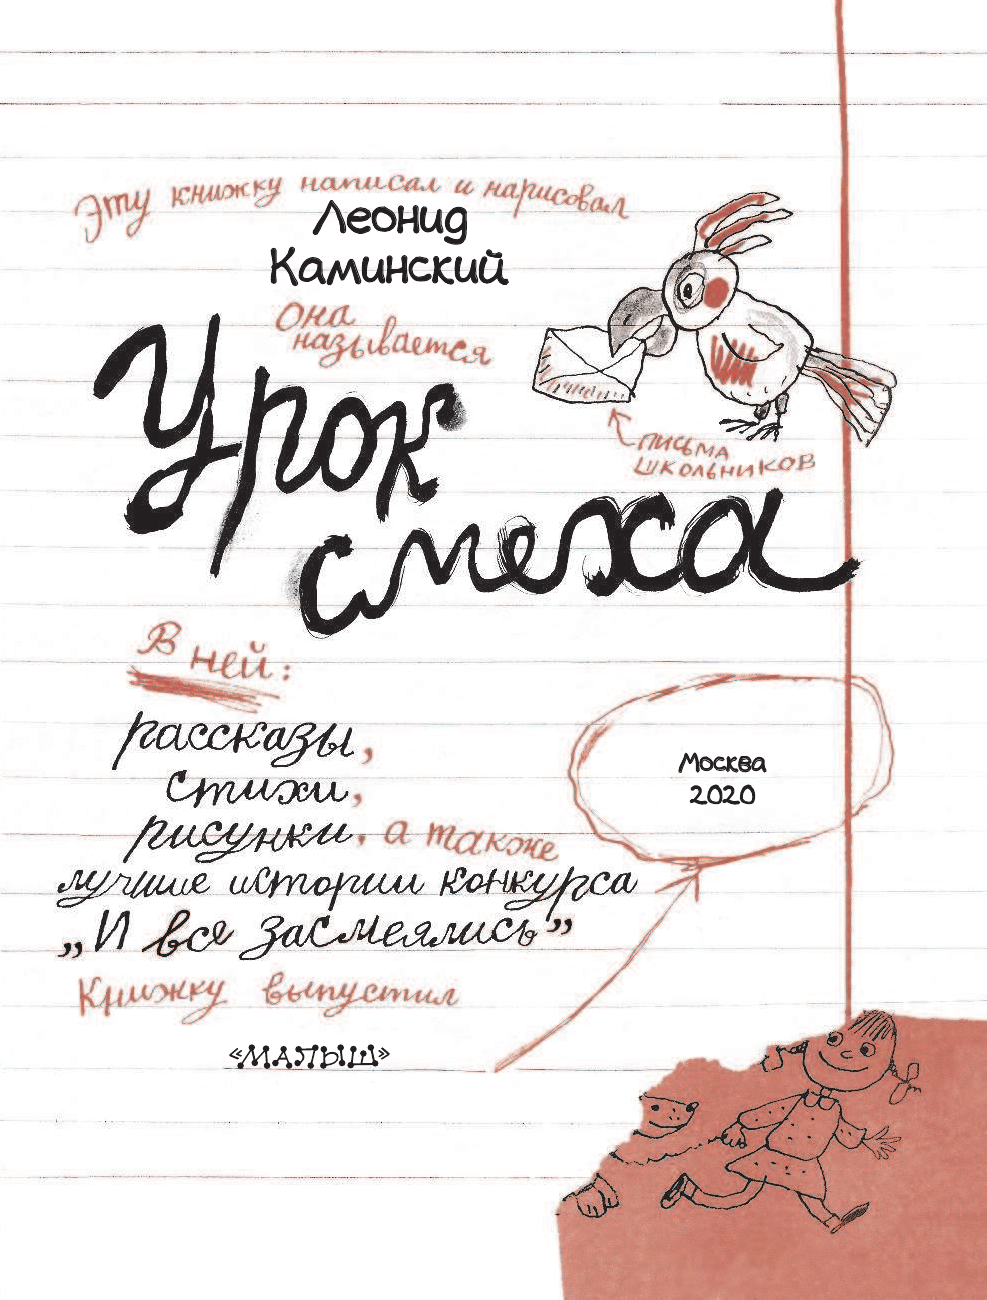 Эту книжку написал и нарисовал
Леонид
Каминский
Она
называется
Урок
смеха
письма
школьников
В ней:
рассказы,
стихи,
рисунки, а также
лучшие истории конкурса
„И все засмеялись”
Книжку выпустил
«МАЛЫШ»
Москва
2020